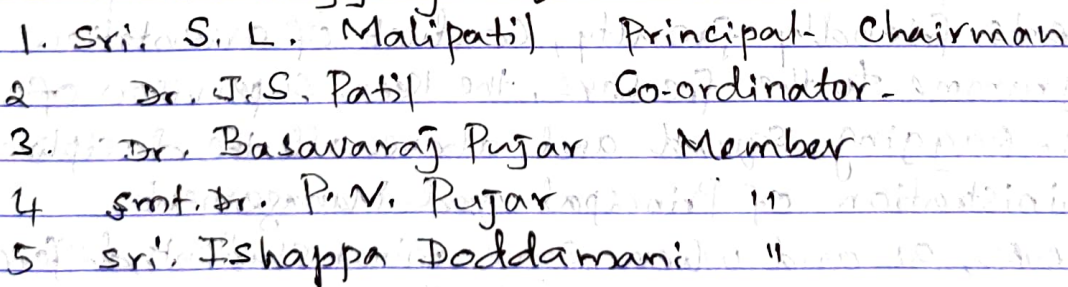 1. Sri. S. L. Malipatil Principal- Chairman
2 Dr. J.S. Patil Co-ordinator-
3. Dr. Basavaraj Pujar Member
4 Smt. Dr. P. V. Pujar "
5 Sri. Ishappa Doddamani "